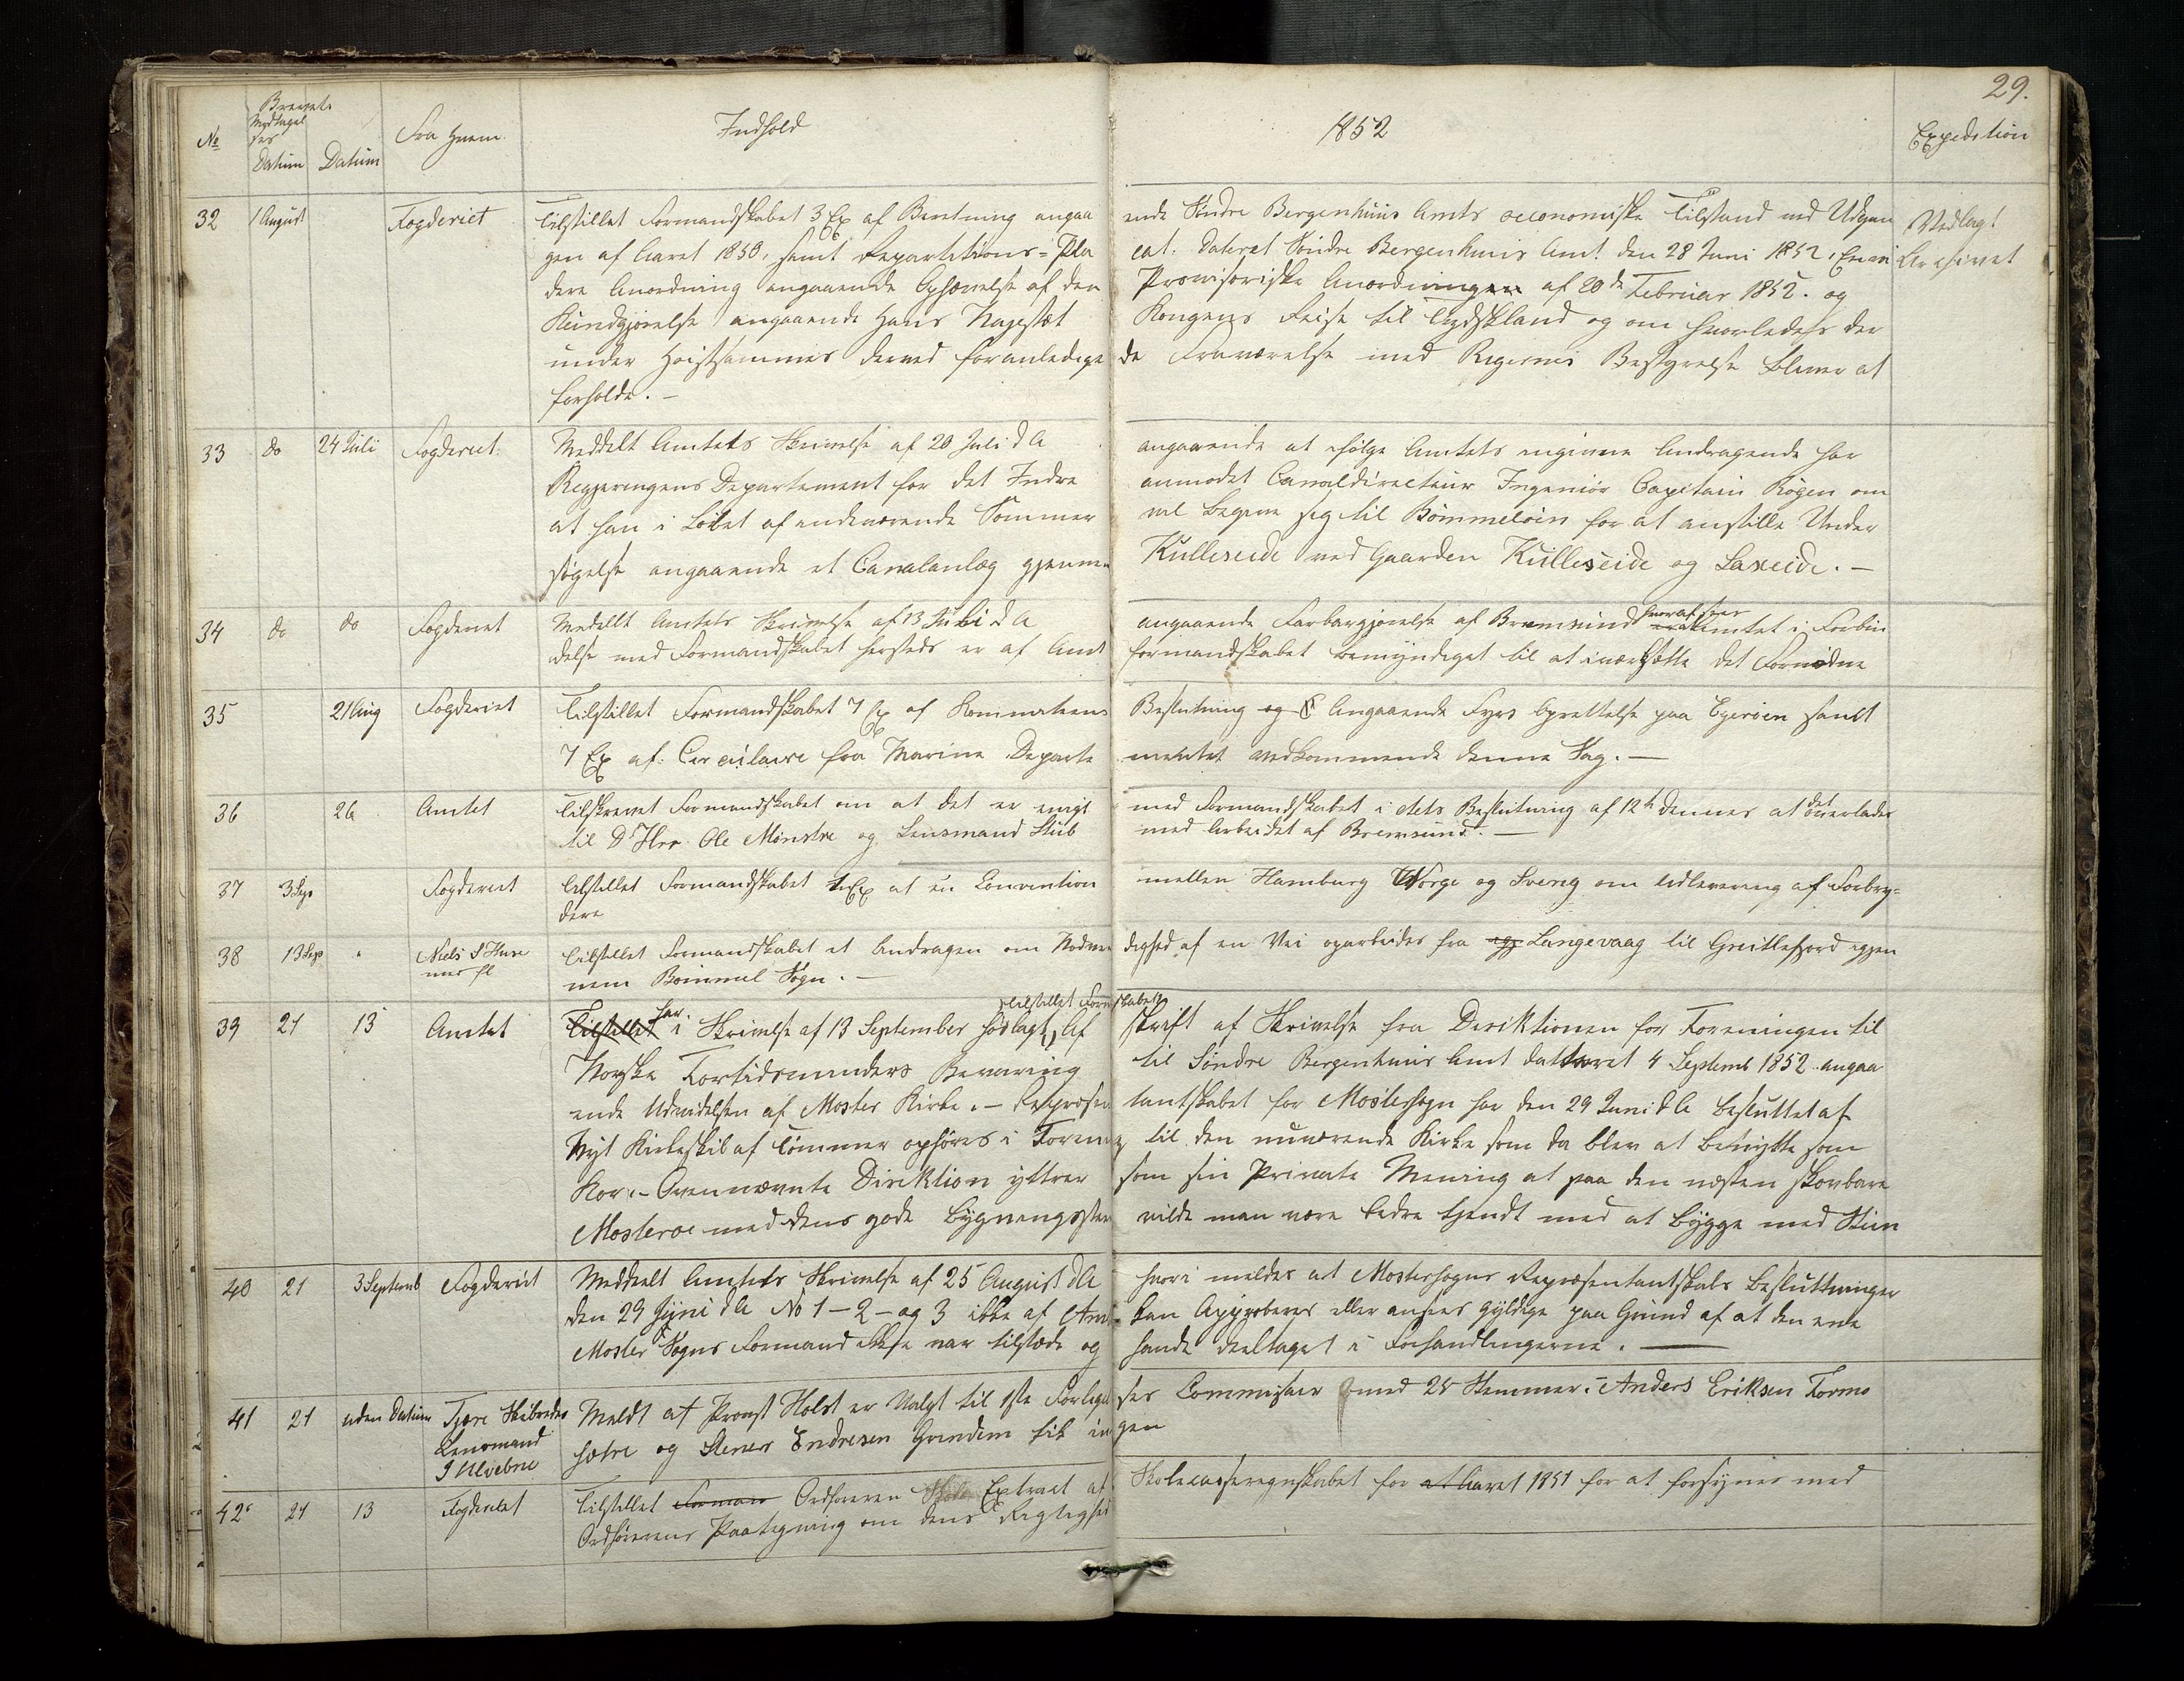 29.
Brevets
Modtagel
ses
№ Datum Datum Fra Hvem Indhold 1852 Expedition
32 1 August Fogderiet Tilstillet Formandskabet 3 Ex af Beretning angaa ende Søndre Bergenhuus Amts oeconomiske Tilstand ved Udgan Vedlagt
gen af Aaret 1850, samt Repartitions-Pla cat. Dateret Søndre Bergenhuus Amt den 28 Juni 1852, Archivet
dere Anordning angaaende Ophævelse af den Provisoriske Anordningen af 20de Februar 1852. og
Kundgjørelse angaaende Hans Majestæt Kongens Reise til Tydskland og om hvorledes der
under Høistsammes derved foranledige de Fraværelse med Rigernes Bestyrelse bliver at
forholde. -
33 do 24 Juli Fogderiet. Meddelt Amtets Skrivelse af 20 Juli d A angaaende at ifølge Amtets Andragende har
Regjeringens Departement for det Indre anmodet Canaldirecteur Ingeniør Capitain Rogen om
at han i Løbet af indeværende Sommer vil begive sig til Bømmeløen for at anstille Under
søgelse angaaende et Canalanlæg gjennem Kulleseide ved Gaarden Kulleseide og Laxeide. -
34 do do Fogderiet Meddelt Amtets Skrivelse af 13 Juli d A angaaende Farbargjørelse af Bremsund hvoraf sees Amtet i Forbin
delse med Formandskabet hersteds er af Amt formandskabet bemyndiget til at iværksætte det Fornødne
35 21 Aug Fogderiet Tilstillet Formandskabet 7 Ex af Kommiteens Beslutning og Angaaende Fyrs Oprettelse paa Egerøen samt
7 Ex af Circulaire fra Marine Departe mentet vedkommende denne Sag. -
36 26 Amtet Tilskrevet Formandskabet om at det er enigt med Formandskabet i dets Beslutning af 12te dennes at det overlades
til D Hrr Ole Mønstre og Lensmand Stub med Arbeidet af Bremsund. -
37 3 Sep Fogderiet Tilstillet Formandskabet 1 Ex af en Convention mellem Hamburg Norge og Sverig om Udlevering af Forbry=
dere
38 13 Sep " Niels S Huse Tilstillet Formandskabet et Andragen om Nødven dighed af en Vei oparbeides fra Langevaag til Greitlefjord igjen
mes fl nem Bømmel Sogn. -
39 21 13 Amtet Tilstillet har i Skrivelse af 13 September tilstillet Formskabet Af skrift af Skrivelse fra Direktionen for Foreningen til
Norske Fortidsminders Bevaring til Søndre Bergenhuus Amt datteret 4 Septemb 1852 angaa
ende Udvidelsen af Moster Kirke. - Repræsen tantskabet for Mostersogn har den 29 Juni d A besluttet at
Nyt Kirkeskib af Tømmer opføres i Foren til den nuværende Kirke som da blev at benytte som
Kor. - Ovennævnte Direktion yttrer som sin Private Mening at paa den næsten skovbare
Mosterøe med dens gode Bygningssten vilde man være bedre tjendt med at bygge med Steen
40 21 3 Septemb Fogderiet Meddeelt Amtets Skrivelse af 25 August d A hvori meldes at Mostersogns Repræsentantskabs Besluttninger
den 29 Juni d A No 1-2-og 3 ikke af Amt kan Approberes eller ansees gyldige paa Grund af at den ene
Moster Sogns Formand ikke var tilstæde og havde deeltaget i Forhandlingerne. -
41 21 uden Datum Tjøre Skibredes Meldt at Provst Holst er Valgt til 1ste Forligel ses Commisair med 28 Stemmer. - Anders Eriksen Tormo
Lensmand sætre og Steners Endresen Grindem fik in gen
J Ulvebne
42 21 13 Fogderiet Tilstillet Forman Ordføreren Extract af Skolecasseregnskabet for at Aaret 1851 for at forsynes med
Ordførerens Paategning om dens Rigtighed